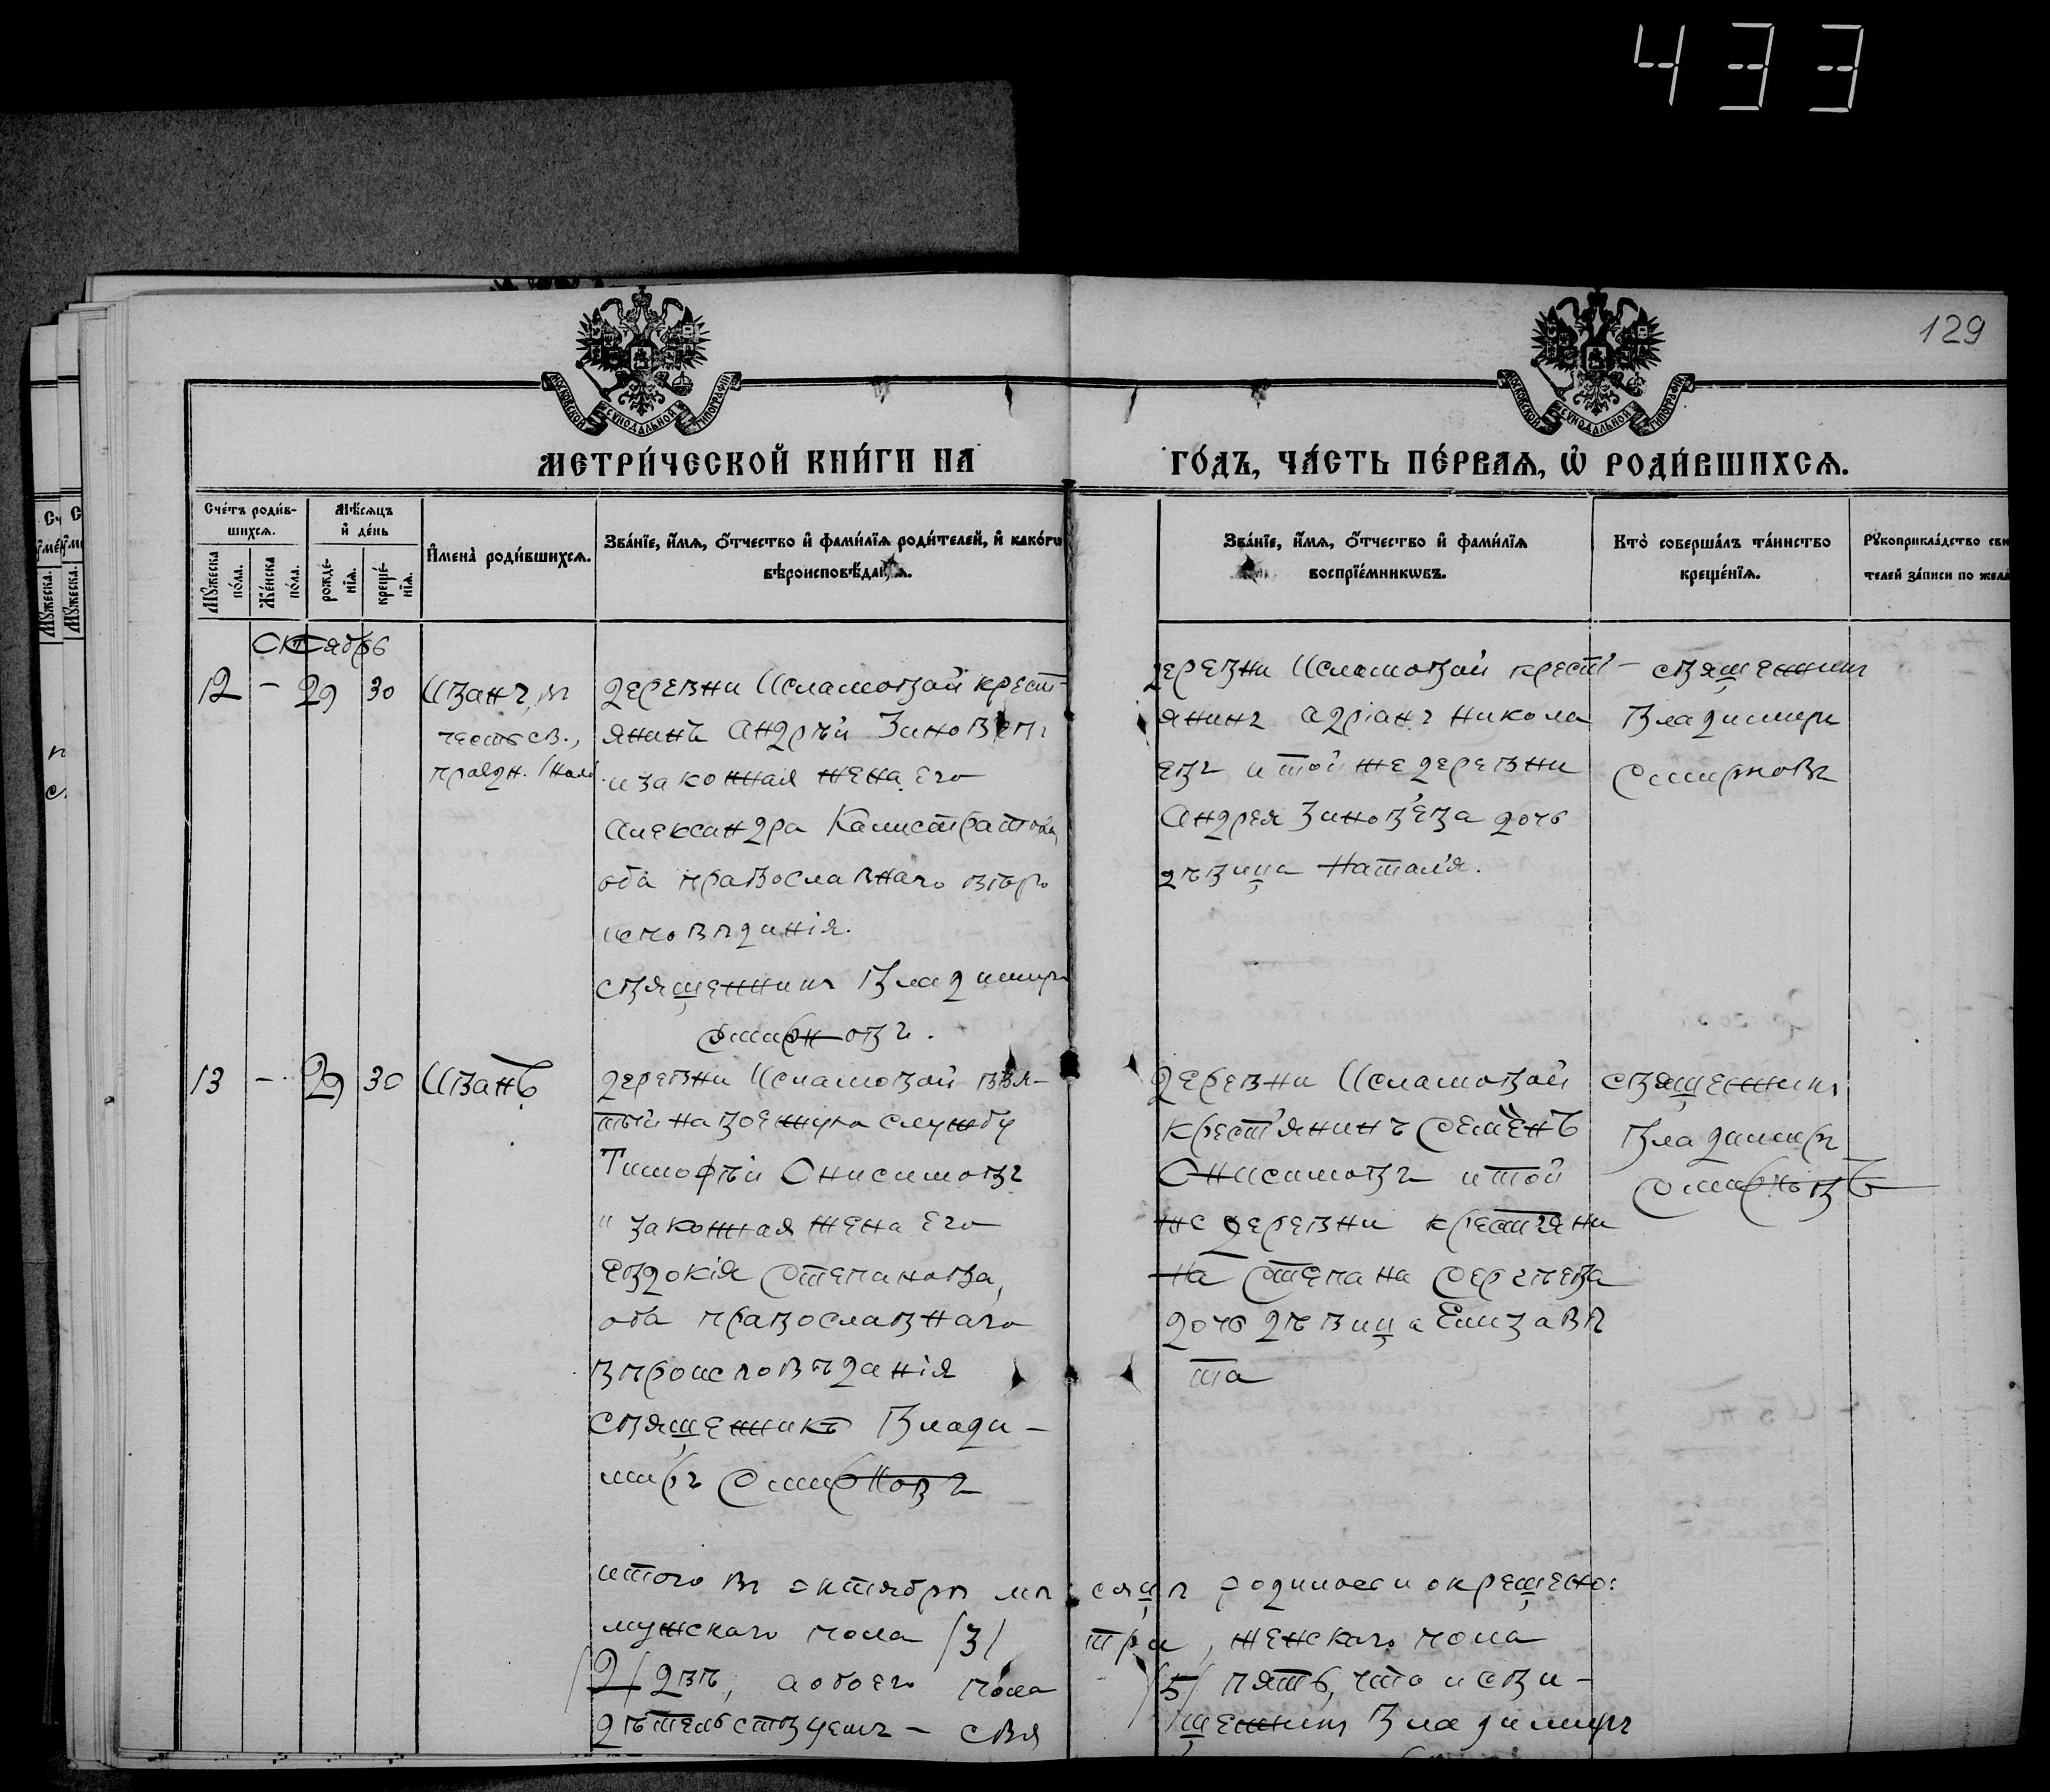 433
129
МОСКОВСКОЙ СѴНОДАЛЬНОЙ ТИПОГРАФІИ
МОСКОВСКОЙ СѴНОДАЛЬНОЙ ТИПОГРАФІИ
МЕТРИ́ЧЕСКОЙ КНИ́ГИ НА ГО́ДЪ, ЧА́СТЬ ПЕ́РВАѦ, Ѡ҆ РОДИ́ВШИХСѦ.
Сче́тъ роди́в-
шихсѧ.
Мѣ́сѧцъ
и҆ де́нь
Мꙋ́жеска
по́ла.
Же́нска
по́ла.
рожде́-
нїѧ.
креще́-
нїѧ.
И҆мена̀ роди́вшихсѧ.
Зва́нїе, и҆́мѧ, ѻ҆́тчество и҆ фами́лїѧ роди́телей, и҆ како́гѡ
вѣроисповѣ́данїѧ.
Зва́нїе, и҆́мѧ, ѻ҆́тчество и҆ фами́лїѧ
воспрїе́мникѡвъ.
Кто̀ соверша́лъ та́инство
креще́нїѧ.
Рꙋкоприкла́дство сви
телей за́писи по жела
Октябрь
12 - 29 30
Иванъ, въ
честь св.,
праздн.
деревни Исламовой крест-
янинъ Андрѣй Зиновьевъ
и законная жена его
Александра Калистратова,
оба православнаго вѣро
исповѣдинія.
священникъ Владимиръ
Смирновъ.
деревни Исламовой крест-
янинъ Адріанъ Никола
евъ и той же деревни
Андрея Зиновьева дочь
дѣвица Наталія.
священникъ
Владимиръ
Смирновъ
13 - 29 30 Иванъ
деревни Исламовой взя-
тый на военную службу
Тимофѣй Онисимовъ
и законная жена его
Евдокія Степанова,
оба православнаго
вѣроисповѣданія
священникъ Влади-
миръ Смирновъ
деревни Исламовой
крестьянинъ Семёнъ
Онисимовъ и той
же деревни крестьяни
на Степана Сергѣева
дочь дѣвица Елизавѣ
та
священникъ
Владимиръ
Смирновъ
итого въ октябрѣ мѣсяцѣ родилось и окрещено:
мужскаго пола /3/ три, женскаго пола
/2/ двѣ, а обоего пола /5/ пять, что и сви-
дѣтельствуемъ - священникъ Владимиръ